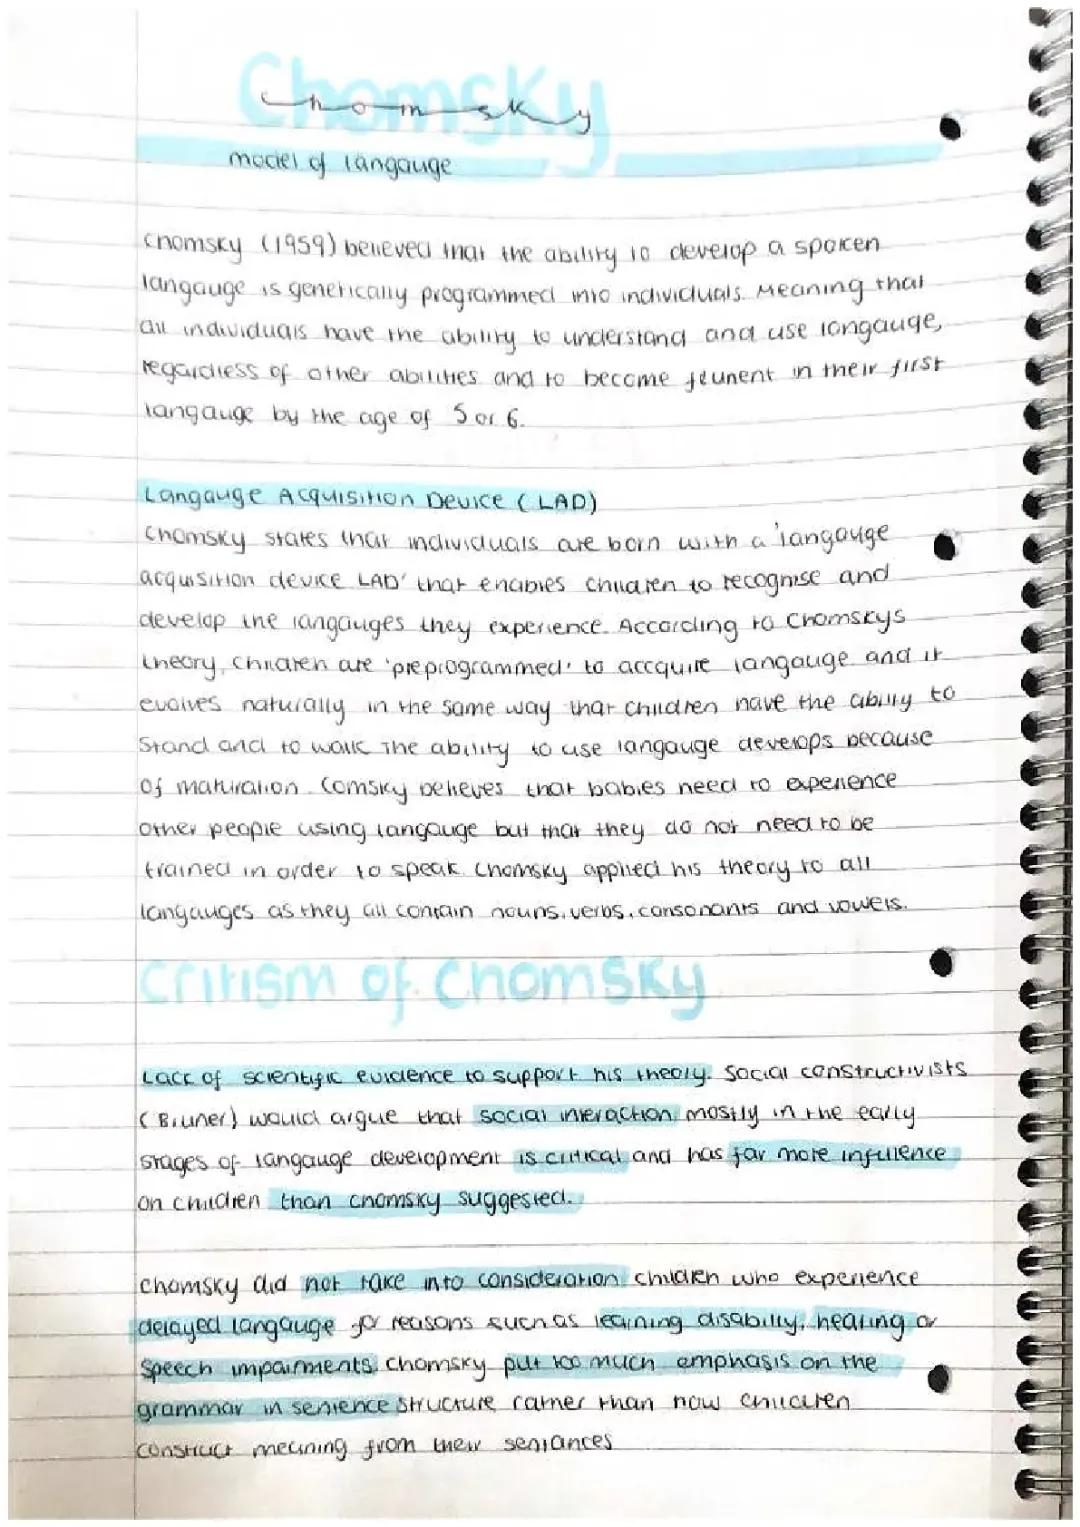 Chomsky
Chomsky
model of langauge
Chomsky (1959) believed that the ability to develop a spoken
langauge is genetically programmed into individuals. Meaning that
all individuals have the ability to understand and use langauge,
regardless of other abilities and to become feunent in their first
langauge by the age of 5 or 6.
Langauge Acquisition Device (LAD)
Chomsky states that individuals are born with a 'langauge
acquisition device LAD' that enables children to recognise and
develop the langauges they experience. According to Chomskys
theory, children are 'preprogrammed' to accquire langauge and it
evolves naturally in the same way that children have the ability to
stand and to walk The ability to use langauge develops because
of maturation. Comsky believes that babies need to experience
other people using langauge but that they do not need to be
trained in order to speak. Chomsky applied his theory to all
langauges as they all contain nouns, verbs, consonants and vowels.
Critism of Chomsky
Lack of scientific evidence to support his theory. Social constructivists
(Bruner) would argue that social interaction, mostly in the early
stages of langauge development is critical and has far more infulence
on children than chomsky suggested.
Chomsky did not take into consideration children who experience
delayed langauge for reasons such as learning disability, hearing or
speech impairments. Chomsky put too much emphasis on the
grammar in sentence structure rather than how children
construct meaning from their sentances